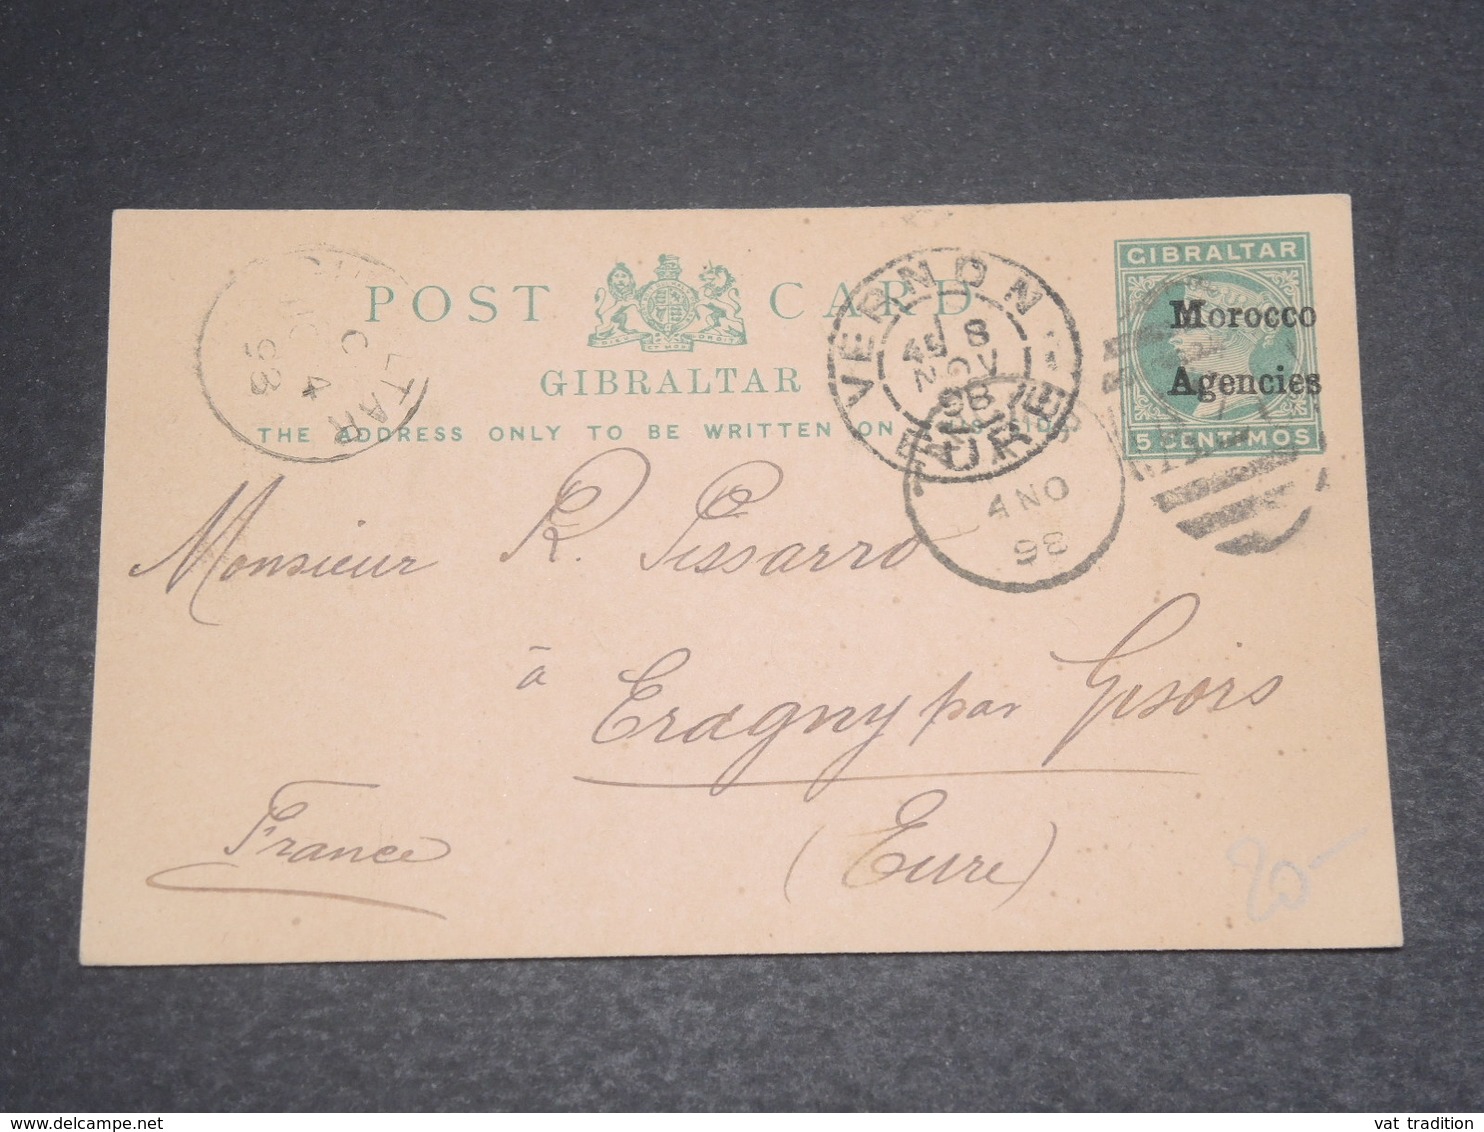 GIBRALTAR
Morocco
Agencies
5 CENTIMOS
POST CARD
GIBRALTAR
THE ADDRESS ONLY TO BE WRITTEN ON
VERNON
8
NOV
98
EURE
4 NO
98
C
4
98
Monsieur R. Pissarro
à Eragny par Gisors
(Eure)
France
20-
www.delcampe.net
vat tradition